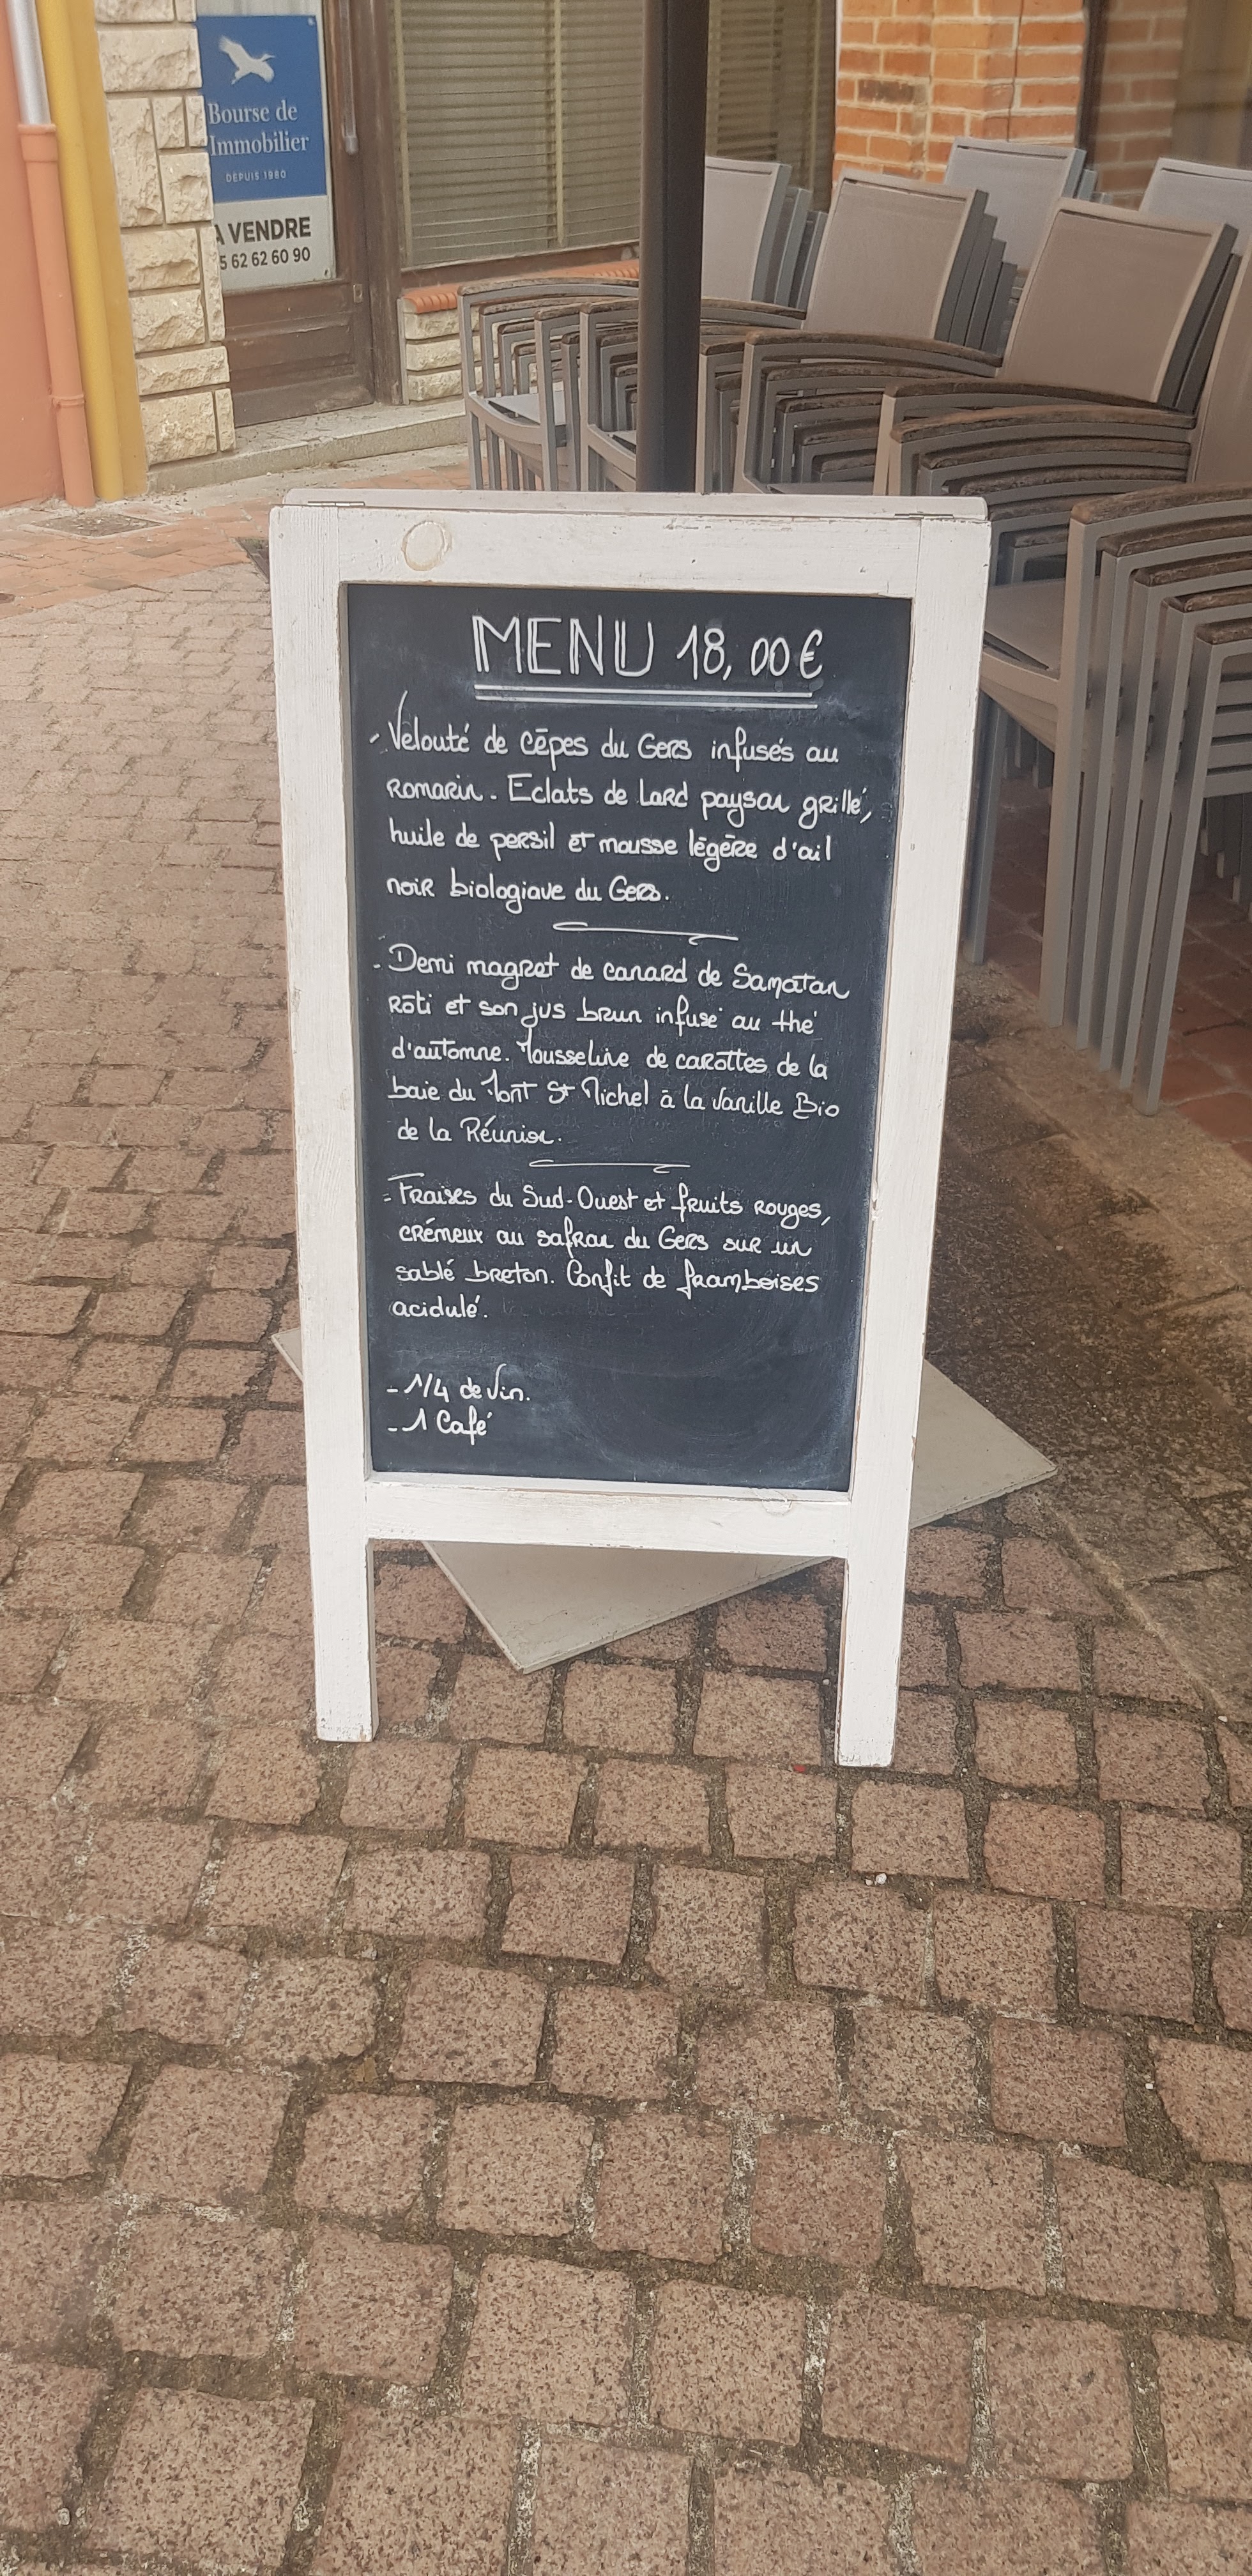 Bourse de
Immobilier
DEPUIS 1980
A VENDRE
5 62 62 60 90
MENU 18,00€
- Velouté de cêpes du Gers infusés au
romarin. Eclats de Lard paysan grillé,
huile de persil et mousse légère d'ail
noir biologique du Gers.
- Demi magret de canard de Samatan
Rôti et son jus brun infusé au thé
d'automne. Mousseline de carottes de la
baie du Mont St Michel à la Vanille Bio
de la Réunion.
- Fraises du Sud-Ouest et fruits rouges,
crémeux au safran du Gers sur un
sablé breton. Confit de framboises
acidulé.
- 1/4 de Vin.
- 1 Café